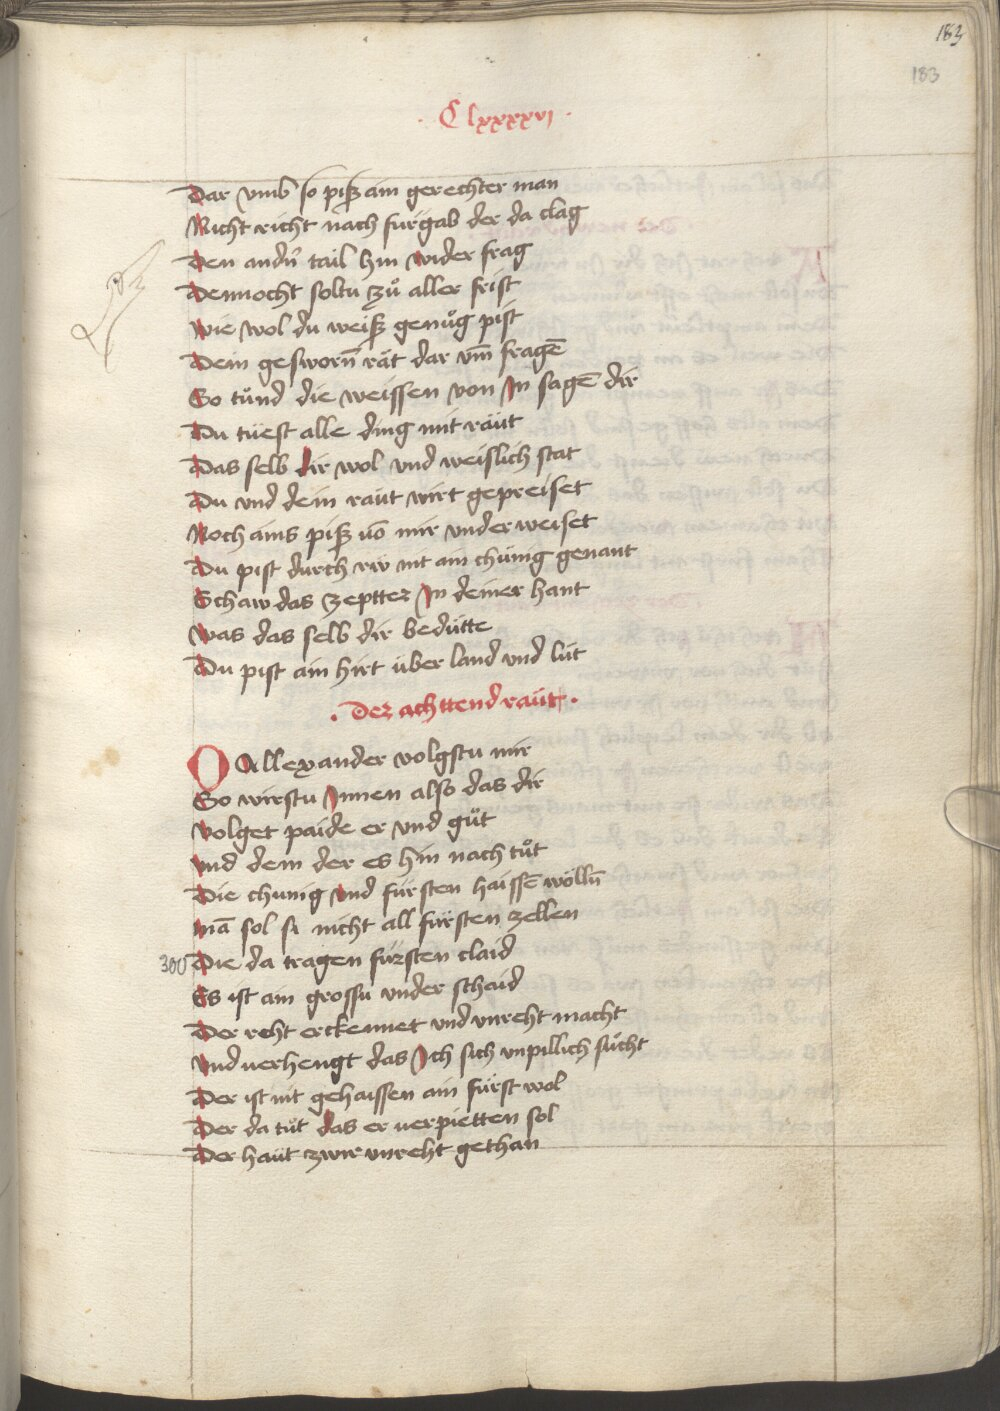 163
183
· Clxxxxvi ·
Dar vmb so piß ain gerechter man
Richt richt nach fürgab der da clag
Den andn̄ tail hin wider frag
Dennocht soltu zů aller frist
Wie wol du weiß genůg pist
Dein gesworn̄ rät dar vm̄ fragē
So tůnd die weissen von In sagē dir
Du tüest alle ding mit räut
Das selb dir wol vnd weislich stat
Du vnd dein raüt wirt gepreiset
Noch ains piß vō mir vnderweiset
Du pist durch nit ain chünig genant
Schaw das zeptter In deiner hant
Was das selb dir bedütte
Du pist ain hirt über land vnd lüt
· Der achttend raüt ·
O Allexander volgstu mir
So wirstu Innen also das dir
Volget paide er vnd gůt
Vnd dem der es hin nach tůt
Die chunig vnd fürsten haissē wölln̄
Mā sol si nicht all fürsten zellen
300 Die da tragen fürsten claid
Es ist ain grossu vnder schaid
Der reht erckennet vnd vnreht macht
Vnd verhengt das Ich sich vnpillich sůcht
Der ist nit gehaissen ain fürst wol
Der da tůt das er verpietten sol
Der haüt zwir vnreht gethan